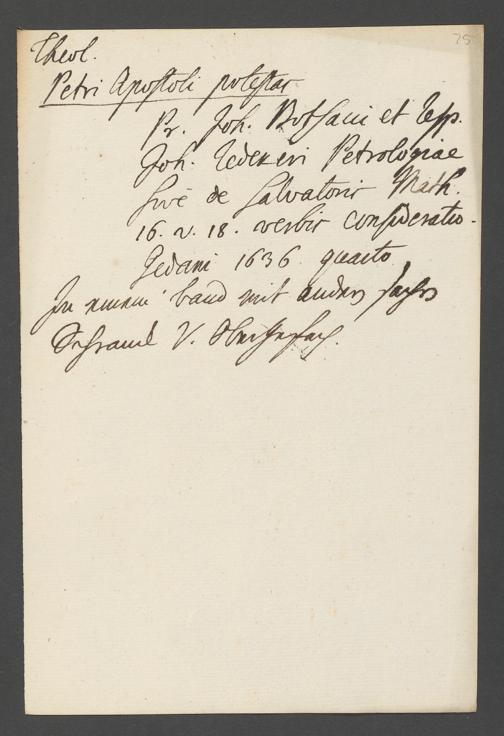 75
Theol.
Petri Apostoli potestas
Pr. Joh. Botsaci et Resp.
Joh. Petrologiae
sive de Salvatoris Math.
16. v. 18. verbis consideratio.
Gedani 1636 quarto
In einem band mit andern
V.